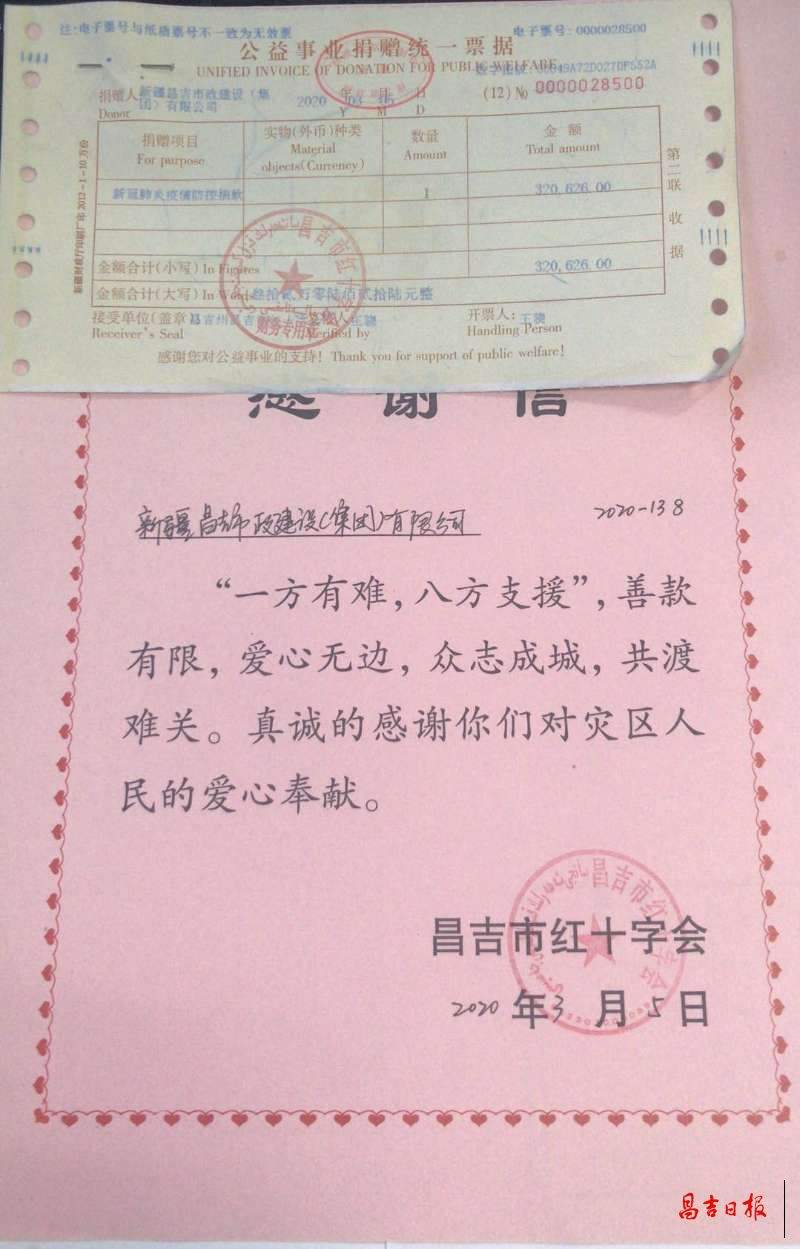 注:电子票号与纸插票号不一致为无效票
电子票号:0000028500
公益事业捐赠统一票据
UNIFIED INVOICE OF DONATION FOR PUBLIC WELFARE
捐赠人 新疆昌吉市政建设(集团)有限公司
Donor
2020 年 03 月 日
Y M D
(12) № 0000028500
捐赠项目 实物(外币)种类 数量 金额
For purpose Material objects(Currency) Amount Total amount
新冠肺炎疫情防控捐款 1 320,626.00
金额合计(小写) In Figures 320,626.00
金额合计(大写) In 叁拾贰万零陆佰贰拾陆元整
接受单位(盖章) 开票人: 王骁
Receiver's Seal Verified by Handling Person
感谢您对公益事业的支持! Thank you for support of public welfare!
第二联 收据
昌吉市红十字会
财务专用章
感谢信
新疆昌吉市政建设(集团)有限公司 2020-138
“一方有难,八方支援”,善款
有限,爱心无边,众志成城,共渡
难关。真诚的感谢你们对灾区人
民的爱心奉献。
昌吉市红十字会
昌吉市红十字会
2020年3月5日
昌吉日报